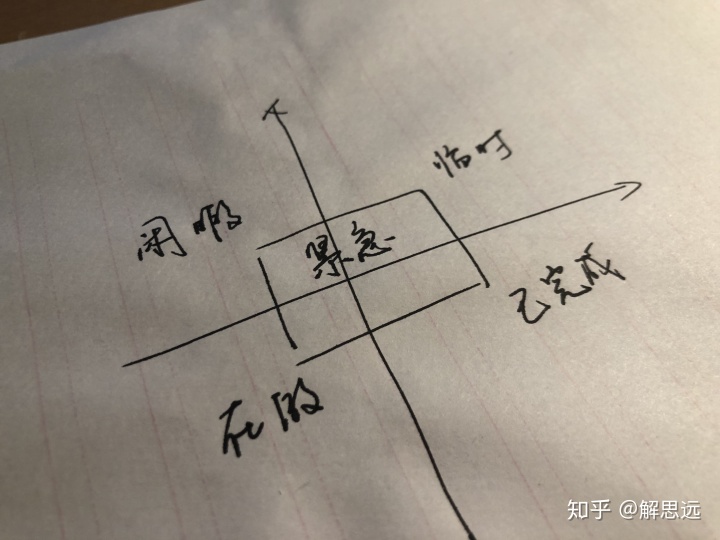 临时
闲暇
紧急
已完成
在做
知乎 @解思远